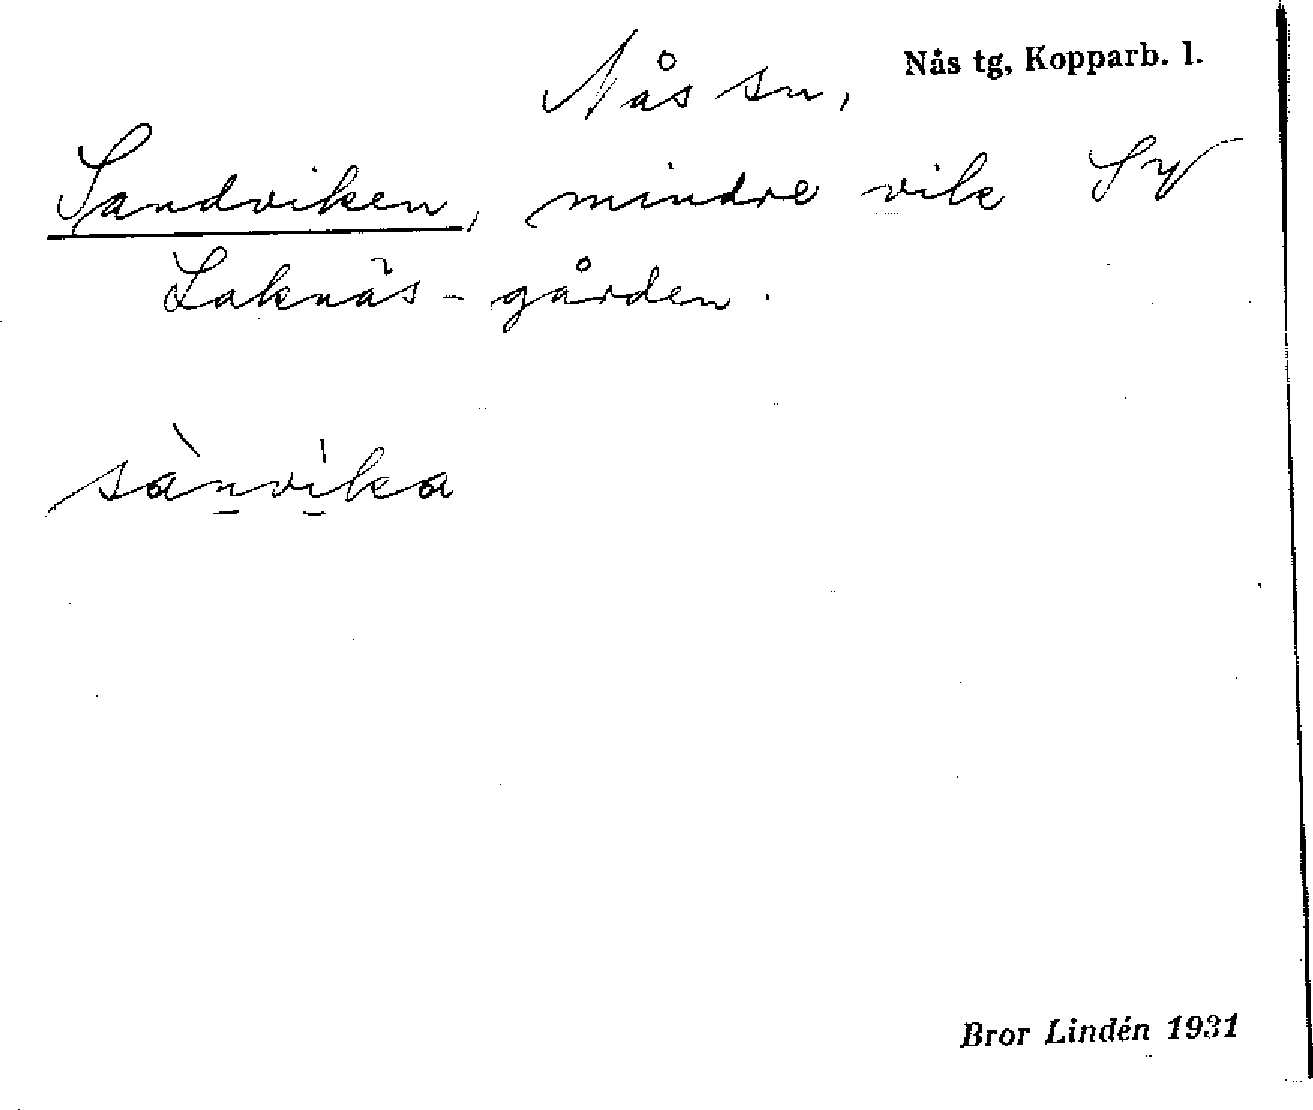 Nås sn, Nås tg, Kopparb. l.
Sandviken, mindre vik SV
Laknäs-gården.
sànvìka
Bror Lindén 1931